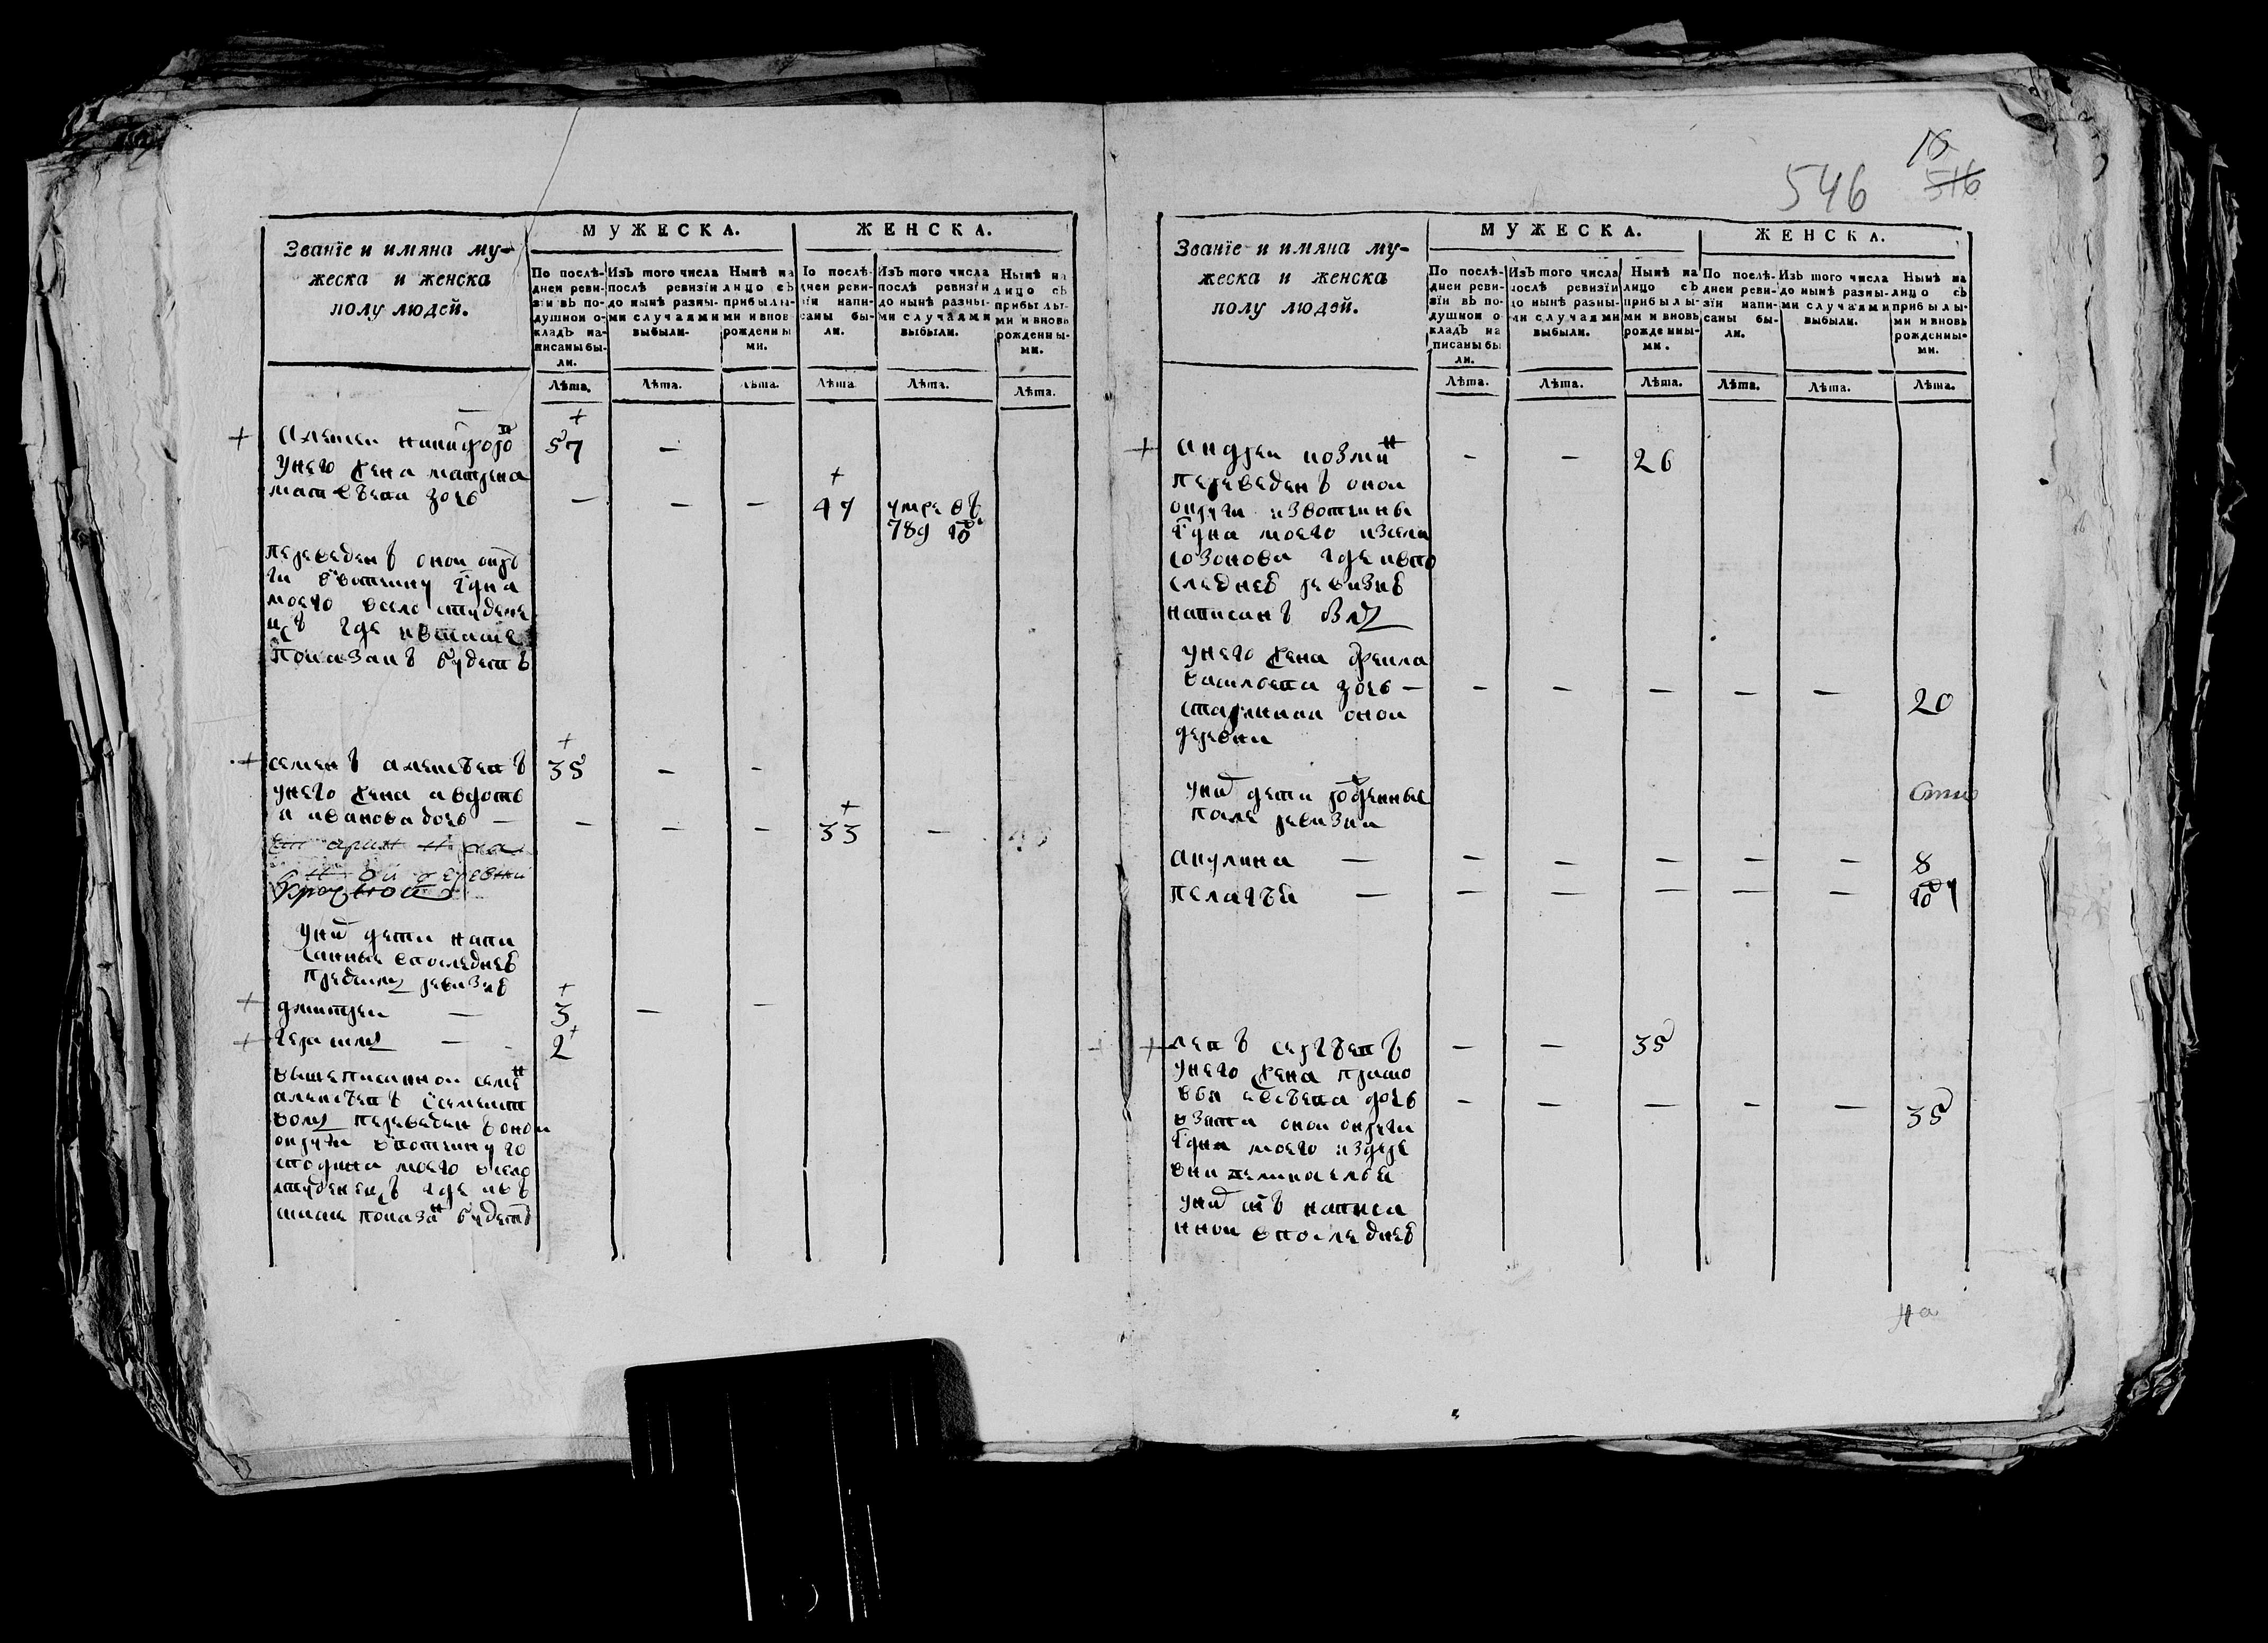 546
516
Званїе и имяна му-
жеска и женска
полу людей.
МУЖЕСКА.
ЖЕНСКА.
По послѣ-
дней реви-
зїи въ по-
душной о-
кладъ на-
писаны бы-
ли.
Изъ того числа
послѣ ревизїи
до нынѣ разны-
ми случаями
выбыли.
Нынѣ на
лицо съ
прибылы-
ми и внов
рожденны
ми.
По послѣ-
дней реви-
зїи напи-
саны бы-
ли.
Изъ того числа
послѣ ревизїи
до нынѣ разны-
ми случаями
выбыли.
Нынѣ на
лицо съ
прибылы-
ми и вновь
рожденны-
ми.
Лѣта. Лѣта. Лѣта. Лѣта. Лѣта. Лѣта.
+
+ алексеи никифоров 57 —
унего жена матрена
+
матвѣева дочь — — — 47 умре въ
789 году
переведенъ онои окру
ги ввотчину гдна
моего всело студене
цъ где ивсказке
показанъ будетъ
+
+ семенъ алексѣевъ 35 — —
унего жена авдоть
+
я иванова дочь — — — — 33 —
деревни
уних дети напи
санные впоследнеѣ
пред сим ревизиѣ
+
+ дмитреи — 3 — —
+ герасим — 2 +
вышеписаннои семен
алексѣевъ ссемеист
вом переведен вонои
округи ввотчину го
сподина моего всело
студенецъ где ивъ
скаске показан будетъ
Званїе и имяна му-
жеска и женска
полу людей.
МУЖЕСКА.
ЖЕНСКА.
По послѣ-
дней реви-
зїи въ по-
душной о-
кладъ на
писаны бы
ли.
Изъ того числа
послѣ ревизїи
до нынѣ разны-
ми случаями
выбыли.
Нынѣ на
лицо съ
прибылы-
ми и вновь
рожденны-
ми.
По послѣ-
дней реви-
зїи напи-
саны бы-
ли.
Изъ того числа
послѣ ревизїи
до нынѣ разны-
ми случаями
выбыли.
Нынѣ на
лицо съ
прибылы-
ми и вновь
рожденны-
ми.
Лѣта. Лѣта. Лѣта. Лѣта. Лѣта. Лѣта.
+ андреи козмин — — 26
переведенъ онои
округи извотчины
гдна моего изсела
созонова где ивпо
следнеѣ ревизиѣ
написанъ
унего жена фекла
васильева дочь — — — — — — 20
старинная онои
деревни
уних дети рожденные
после ревизии
акулина — — — — — — 8
пелагѣя — — — — — — году
+ левъ сергѣевъ — — 35
унего жена праско
вья евсѣева дочь — — — — — 35
взята онои округи
гдна моего издере
вни
уних сынъ написа
ннои впоследнеѣ
на